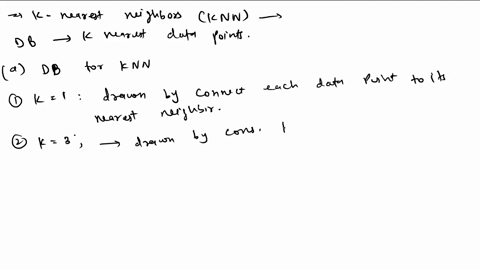 → K-nearest neighbors (KNN) →
DB → K nearest data points.
(a) DB for KNN
① K=1 : drawn by connect each data point to its
nearest neighbir.
② K=3; → drawn by cons.